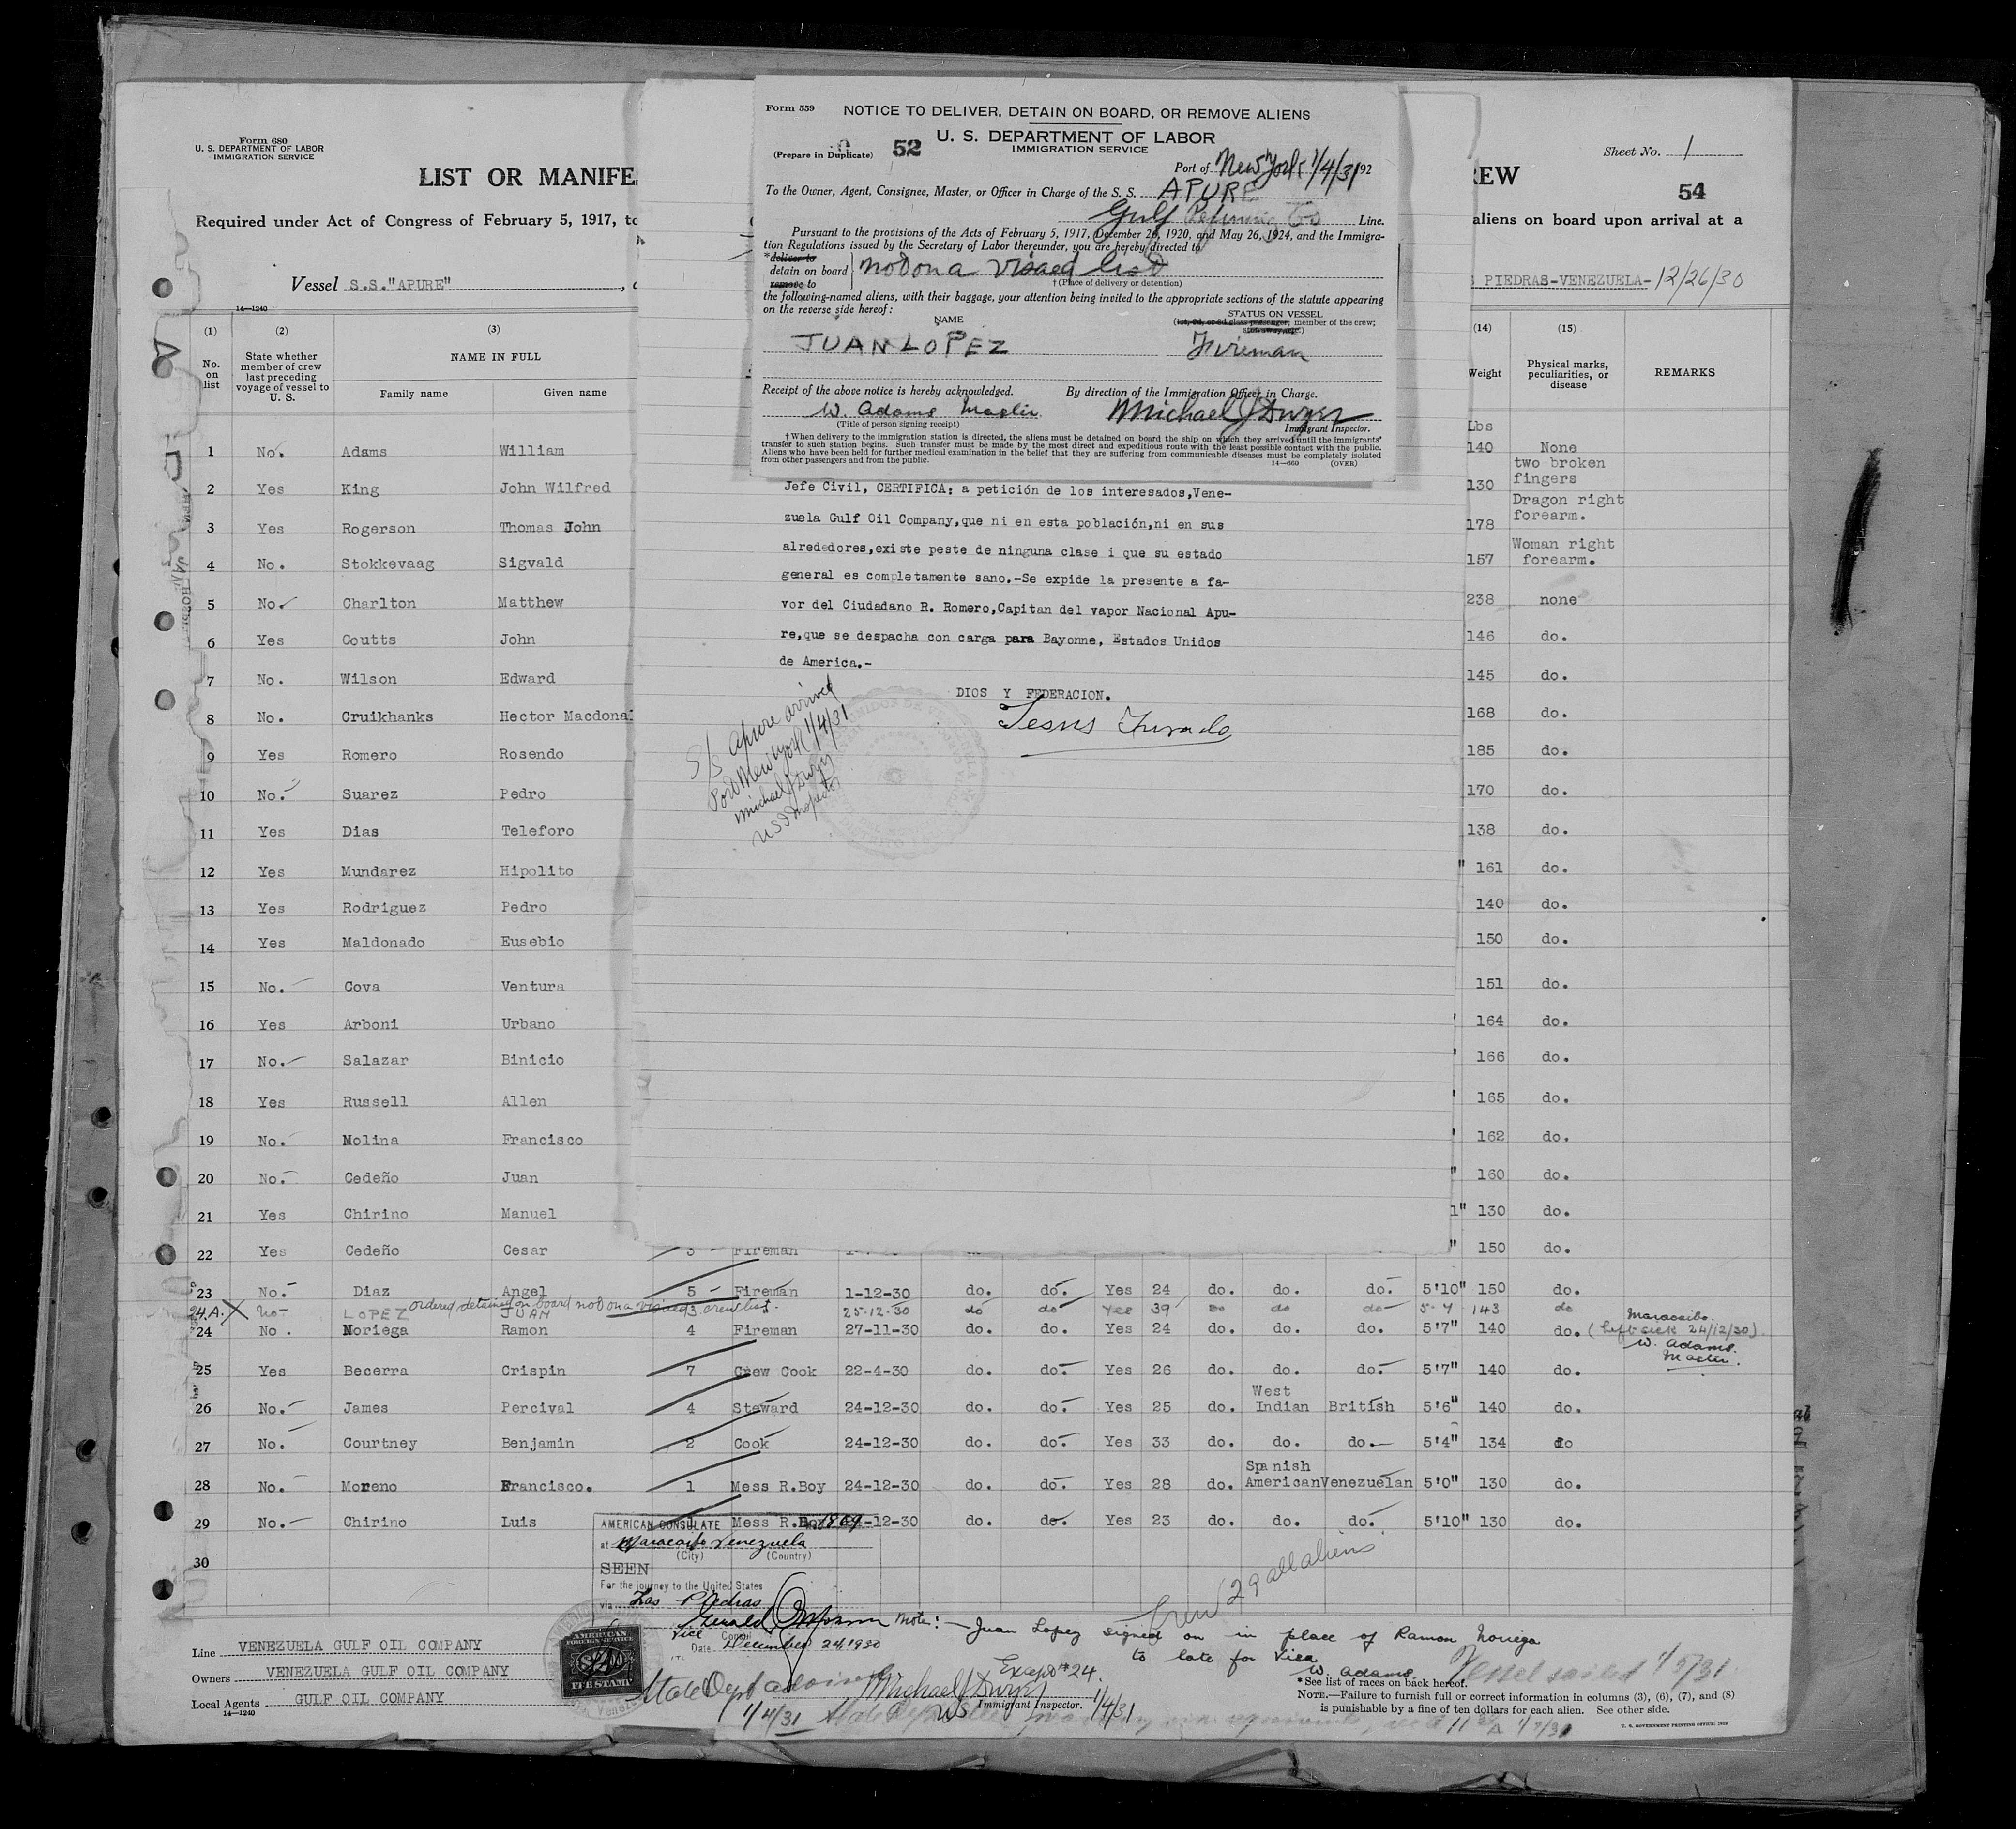 Form 680
U. S. DEPARTMENT OF LABOR
IMMIGRATION SERVICE
LIST OR MANIFE
Required under Act of Congress of February 5, 1917, to
Vessel S.S."APURE"
14—1240
(1) (2) (3)
No. on list
State whether member of crew last preceding voyage of vessel to U. S.
NAME IN FULL
Family name Given name
Form 559
NOTICE TO DELIVER, DETAIN ON BOARD, OR REMOVE ALIENS
(Prepare in Duplicate) 52
U. S. DEPARTMENT OF LABOR
IMMIGRATION SERVICE
Port of New York 1/4/31 192
To the Owner, Agent, Consignee, Master, or Officer in Charge of the S. S. APURE
Gulf Refining Co Line.
Pursuant to the provisions of the Acts of February 5, 1917, December 26, 1920, and May 26, 1924, and the Immigra-
tion Regulations issued by the Secretary of Labor thereunder, you are hereby directed to
*deliver to
detain on board not on a visaed list
remove to
†(Place of delivery or detention)
the following-named aliens, with their baggage, your attention being invited to the appropriate sections of the statute appearing
on the reverse side hereof:
NAME
STATUS ON VESSEL
(1st, 2d, or 3d class passenger; member of the crew;
stowaway, etc.)
JUAN LOPEZ Fireman
Receipt of the above notice is hereby acknowledged. By direction of the Immigration Officer in Charge.
W. Adams Master Michael J Dwyer
(Title of person signing receipt) Immigrant Inspector.
†When delivery to the immigration station is directed, the aliens must be detained on board the ship on which they arrived until the immigrants'
transfer to such station begins. Such transfer must be made by the most direct and expeditious route with the least possible contact with the public.
Aliens who have been held for further medical examination in the belief that they are suffering from communicable diseases must be completely isolated
from other passengers and from the public.
14—660 (OVER)
Jefe Civil, CERTIFICA: a petición de los interesados,Vene-
zuela Gulf Oil Company,que ni en esta población,ni en sus
alrededores,existe peste de ninguna clase i que su estado
general es completamente sano.-Se expide la presente a fa-
vor del Ciudadano R. Romero,Capitan del vapor Nacional Apu-
re,que se despacha con carga para Bayonne, Estados Unidos
de America.-
DIOS Y FEDERACION.
Jesus Jurado
S/S Apure arrived
Port New York 1/4/31
Michael J Dwyer
US Inspector
Sheet No. 1
REW
54
aliens on board upon arrival at a
PIEDRAS-VENEZUELA-12/26/30
(14) (15)
Weight
Physical marks, peculiarities, or disease
REMARKS
Lbs
1 No. Adams William 140 None
2 Yes King John Wilfred 130 two broken fingers
3 Yes Rogerson Thomas John 178 Dragon right forearm.
4 No. Stokkevaag Sigvald 157 Woman right forearm.
5 No. Charlton Matthew 238 none
6 Yes Coutts John 146 do.
7 No. Wilson Edward 145 do.
8 No. Cruikhanks Hector Macdonal 168 do.
9 Yes Romero Rosendo 185 do.
10 No. Suarez Pedro 170 do.
11 Yes Dias Teleforo 138 do.
12 Yes Mundarez Hipolito " 161 do.
13 Yes Rodriguez Pedro 140 do.
14 Yes Maldonado Eusebio 150 do.
15 No. Cova Ventura 151 do.
16 Yes Arboni Urbano 164 do.
17 No. Salazar Binicio 166 do.
18 Yes Russell Allen 165 do.
19 No. Molina Francisco 162 do.
20 No. Cedeño Juan " 160 do.
21 Yes Chirino Manuel 1" 130 do.
22 Yes Cedeño Cesar 3 Fireman " 150 do.
23 No. Diaz Angel 5 Fireman 1-12-30 do. do. Yes 24 do. do. do. 5'10" 150 do.
ordered detained on board not on a visaed crew list.
24.A. X No- LOPEZ JUAN 3 25-12-30 do do Yes 39 do do do 5-7 143 do
24 No. Noriega Ramon 4 Fireman 27-11-30 do. do. Yes 24 do. do. do. 5'7" 140 do.
Maracaibo.
(Left sick 24/12/30)
W. Adams.
Master.
25 Yes Becerra Crispin 7 Crew Cook 22-4-30 do. do. Yes 26 do. do. do. 5'7" 140 do.
26 No. James Percival 4 Steward 24-12-30 do. do. Yes 25 do. West Indian British 5'6" 140 do.
27 No. Courtney Benjamin 2 Cook 24-12-30 do. do. Yes 33 do. do. do. 5'4" 134 do
28 No. Moreno Francisco. 1 Mess R.Boy 24-12-30 do. do. Yes 28 do. Spanish American Venezuelan 5'0" 130 do.
29 No. Chirino Luis Mess R. -12-30 do. do. Yes 23 do. do. do. 5'10" 130 do.
30
AMERICAN CONSULATE
at Maracaibo Venezuela
(City) (Country)
SEEN
For the journey to the United States
via Las Piedras
Vice Consul
Date December 24, 1930
AMERICAN
FOREIGN SERVICE
FEE STAMP
Crew (29 all aliens)
Note:- Juan Lopez signed on in place of Ramon Noriega
to late for Visa
W. Adams.
Except #24.
Vessel sailed 1/5/31
State Dept
Michael J Dwyer
US Immigrant Inspector. 1/4/31
1/4/31
Line VENEZUELA GULF OIL COMPANY
Owners VENEZUELA GULF OIL COMPANY
Local Agents GULF OIL COMPANY
14—1240
*See list of races on back hereof.
NOTE.—Failure to furnish full or correct information in columns (3), (6), (7), and (8)
is punishable by a fine of ten dollars for each alien. See other side.
U. S. GOVERNMENT PRINTING OFFICE: 1929